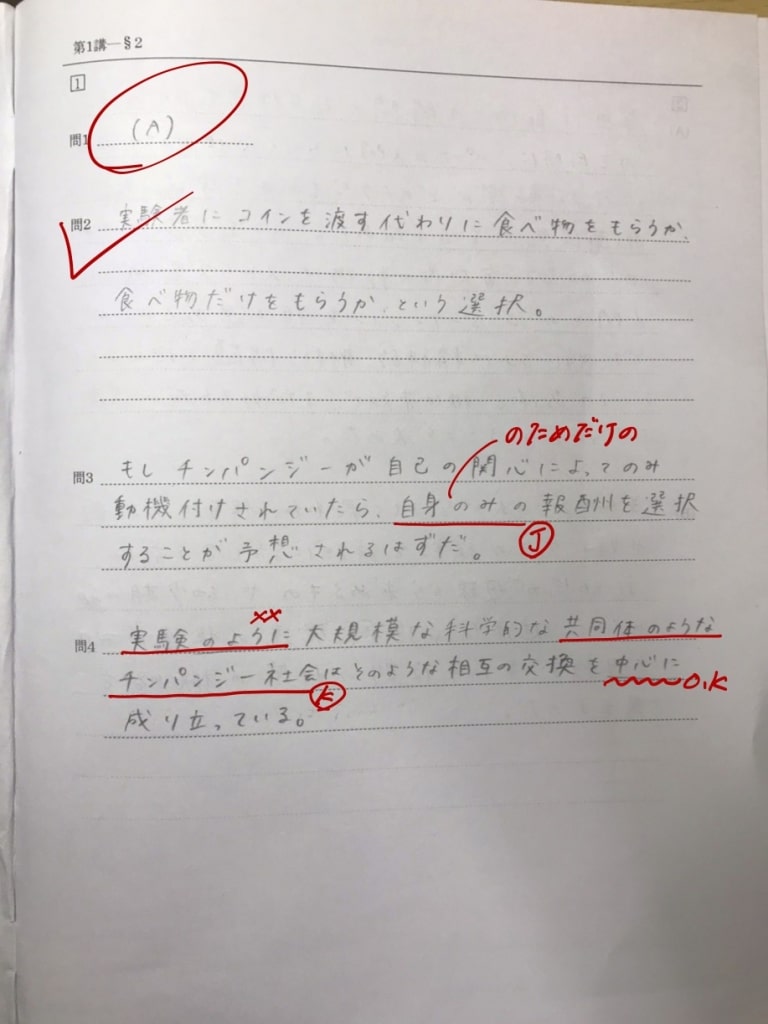 第1講—§2
1
問1 (A)
問2 実験者にコインを渡す代わりに食べ物をもらうか、
食べ物だけをもらうか、という選択。
のためだけの
問3 もしチンパンジーが自己の関心によってのみ
動機付けされていたら、自身のみの報酬州を選択
することが予想されるはずだ。 J
××
問4 実験のように大規模な科学的な共同体のような
チンパンジー社会はそのような相互の交換を中心に O.K
K
成り立っている。